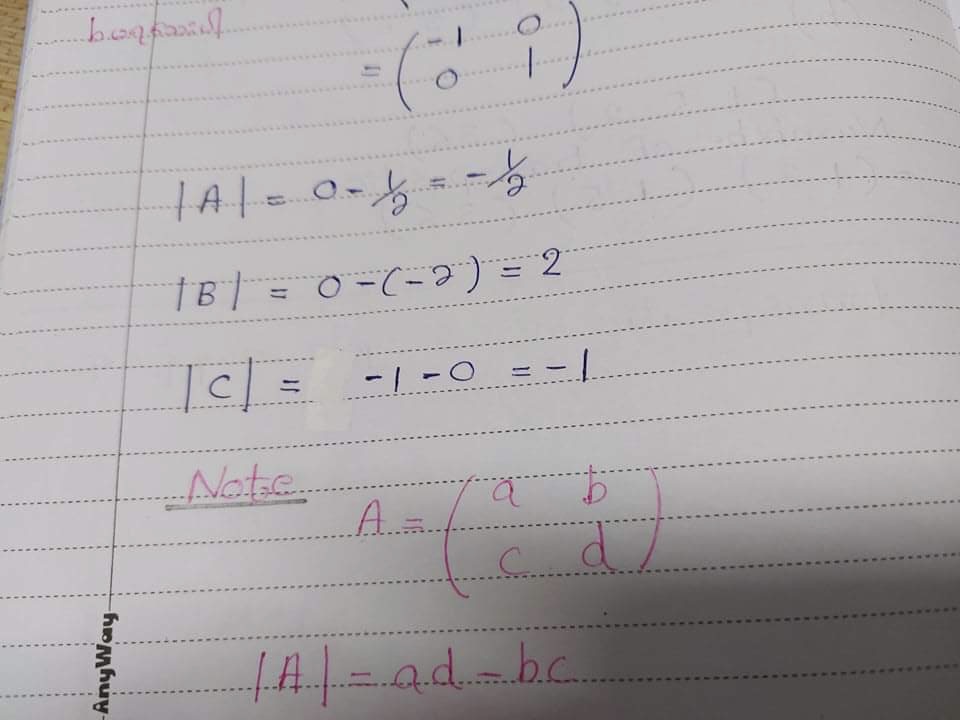 = ( -1 0
0 1 )
|A| = 0 - 1/2 = - 1/2
|B| = 0 - (-2) = 2
|C| = -1 - 0 = -1
Note
A = ( a b
c d )
|A| = ad - bc
-AnyWay